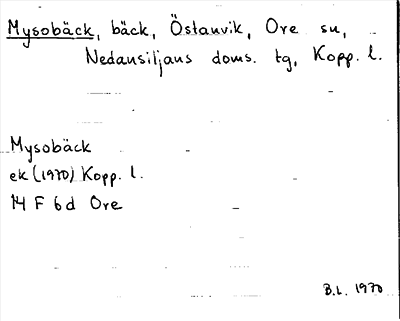 Mysobäck, bäck, Östanvik, Ore sn,
Nedansiljans doms. tg, Kopp. l.
Mysobäck
ek (1970) Kopp. l.
14 F 6 d Ore
B.L. 1970